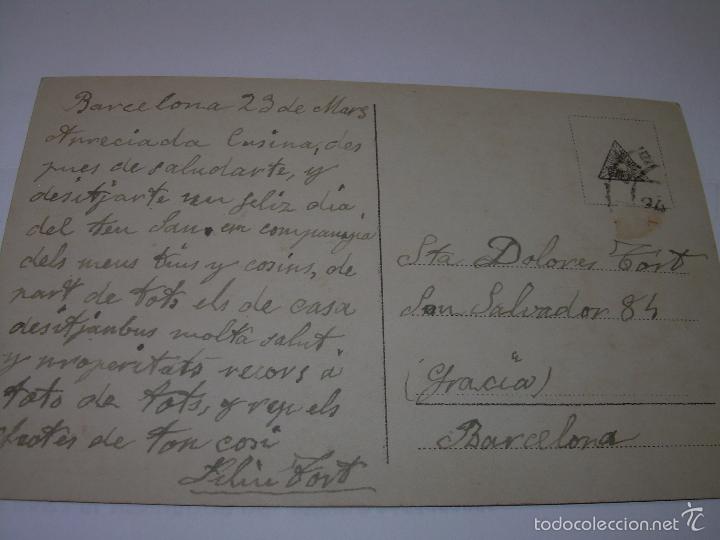 Barcelona 23 de Mars
Apreciada Cusina, des
pues de saludarte, y
desitjarte un feliz dia
del teu San. en companyia
dels meus tius y cosins, de
part de tots els de casa
desitjanbus molta salut
y properitats recors á
toto de tots, y rep els
de ton cosi
Feliu Tort
Sta Dolores Tort
San Salvador 84
(Gracia)
Barcelona
todocoleccion.net